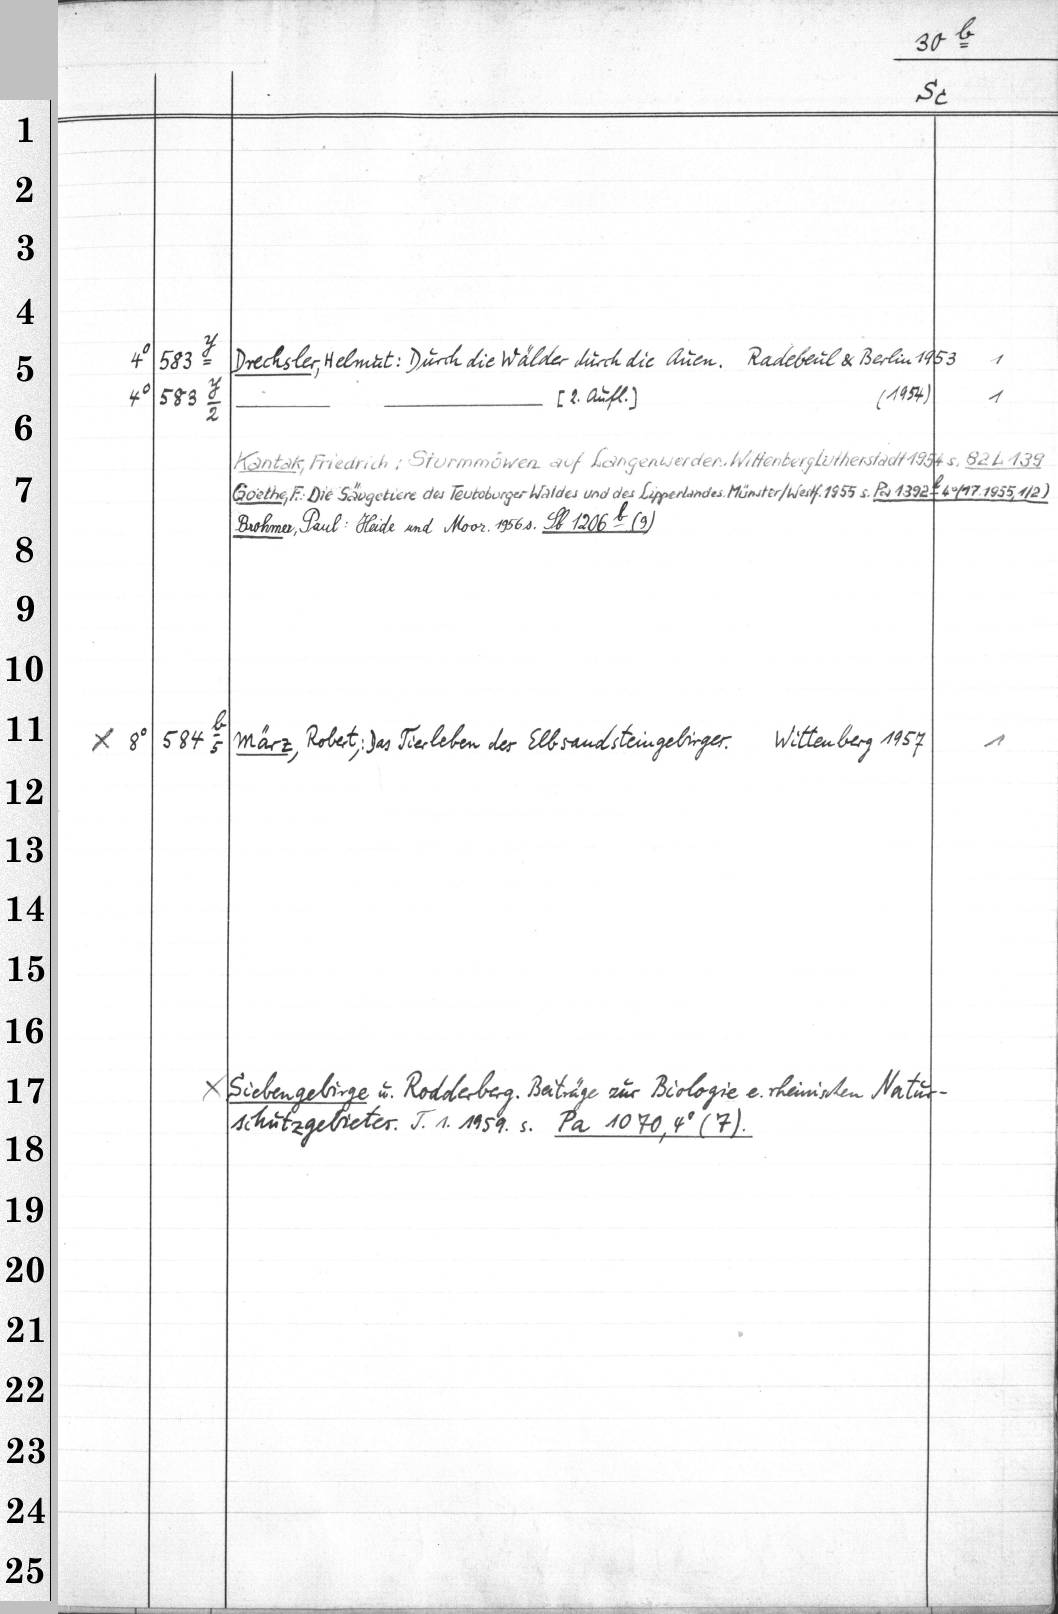 30 b
Sc
1
2
3
4
4° 583 y Drechsler, Helmut: Durch die Wälder durch die Auen. Radebeul & Berlin 1953 1
5
4° 583 y/2 [2. Aufl.] (1954) 1
6
Kantak, Friedrich: Sturmmöwen auf Langenwerder. Wittenberg Lutherstadt 1954 s. 82 L 139
7 Goethe, F.: Die Säugetiere des Teutoburger Waldes und des Lipperlandes. Münster/Westf. 1955 s. Pa 1392 b 4° (17.1955,1/2)
Brohmer, Paul: Heide und Moor. 1956 s. Sb 1206 b (9)
8
9
10
11 × 8° 584 b/5 März, Robert,: Das Tierleben des Elbsandsteingebirges. Wittenberg 1957 1
12
13
14
15
16
17 × Siebengebirge u. Rodderberg. Beiträge zur Biologie e. rheinischen Natur-
schutzgebietes. T. 1. 1959. s. Pa 1070, 4° (7).
18
19
20
21
22
23
24
25